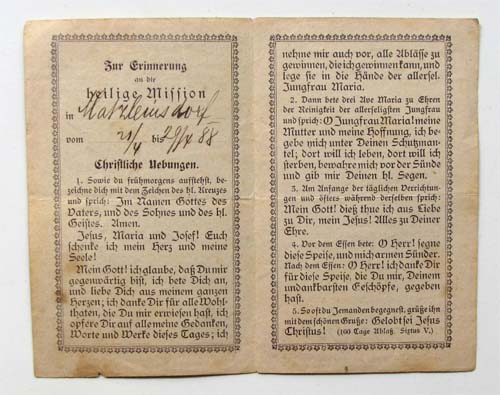 Zur Erinnerung
an die
heilige Mission
in Matzleinsdorf
vom 20/4 bis 29/4 88
Christliche Uebungen.
1. Sowie du frühmorgens aufstehst, be-
zeichne dich mit dem Zeichen des hl. Kreuzes
und sprich: Im Namen Gottes des
Vaters, und des Sohnes und des hl.
Geistes. Amen.
Jesus, Maria und Josef! Euch
schenke ich mein Herz und meine
Seele!
Mein Gott! ich glaube, daß Du mir
gegenwärtig bist, ich bete Dich an,
und liebe Dich aus meinem ganzen
Herzen; ich danke Dir für alle Wohl-
thaten, die Du mir erwiesen hast, ich
opfere Dir auf alle meine Gedanken,
Worte und Werke dieses Tages; ich
nehme mir auch vor, alle Ablässe zu
gewinnen, die ich gewinnen kann, und
lege sie in die Hände der allersel.
Jungfrau Maria.
2. Dann bete drei Ave Maria zu Ehren
der Reinigkeit der allerseligsten Jungfrau
und sprich: O Jungfrau Maria! meine
Mutter und meine Hoffnung, ich be-
gebe mich unter Deinen Schutzman-
tel; dort will ich leben, dort will ich
sterben, bewahre mich vor der Sünde
und gib mir Deinen hl. Segen.
3. Am Anfange der täglichen Verrichtun-
gen und öfters während derselben sprich:
Mein Gott! dieß thue ich aus Liebe
zu Dir, mein Jesus! Alles zu Deiner
Ehre.
4. Vor dem Essen bete: O Herr! segne
diese Speise, und mich armen Sünder.
Nach dem Essen: O Herr! ich danke Dir
für diese Speise, die Du mir, Deinem
undankbarsten Geschöpfe, gegeben
hast.
5. So oft du Jemanden begegnest, grüße ihn
mit dem schönen Gruße: Gelobt sei Jesus
Christus! (100 Tage Ablaß. Sixtus V.)